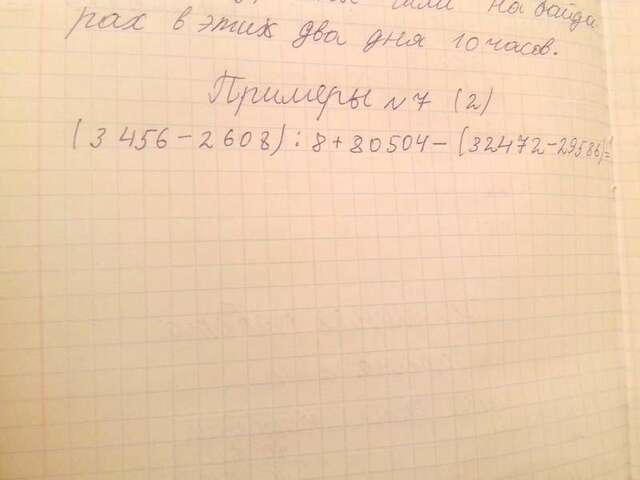 на байда
рах в этих два дня 10 часов.
Примеры N 7 (2)
(3 456 - 2 608) : 8 + 80504 - (32472 - 29586) =